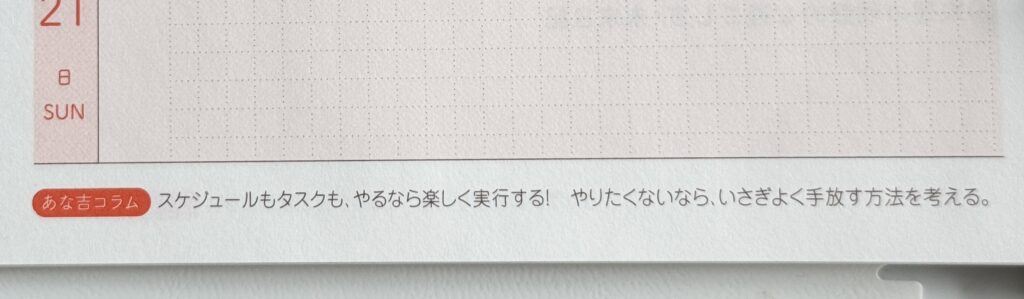 21
日
SUN
あな吉コラム スケジュールもタスクも、やるなら楽しく実行する！　やりたくないなら、いさぎよく手放す方法を考える。